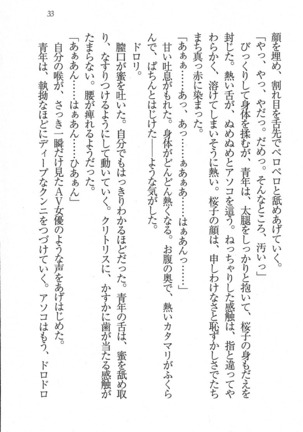 33
顔を埋め、割れ目を舌先でペロペロと舐めあげていく。
「やっ、やっ、やだっ。だめっ。そんなところ、汚いっ」
びっくりして身体を揉むが、青年は、太腿をしっかりと抱いて、桜子の身もだえを
封じた。熱い舌が、ぬめぬめとアソコを這う。ねっちゃりした感触は、指と違ってや
わらかく、溶けてしまいそうに熱い。桜子の顔は、申しわけなさと恥ずかしさでたち
まち真っ赤に染まった。
「あぁぁ……あっ、あああっ……はあっ……あぁん……」
甘い吐息がもれた。身体がどんどん熱くなる。お腹の奥で、熱いカタマリがふくら
んで、ぱちんとはじけた――ような気がした。
ドロリ。
膣口が蜜を吐いた。自分でもはっきりわかるほどだった。青年の舌は、蜜を舐め取
り、なすりつけるようにして動いていく。クリトリスに、かすかに歯が当たる感触が
たまらない。腰が痺れるようだった。
「あぁぁあんっ……はぁあんっ……ひあぁんっ」
自分の喉が、さっき一瞬だけ見たAV女優のような声をあげはじめた。
青年は、執拗なほどにディープなクンニをつづけていく。アソコはもう、ドロドロ